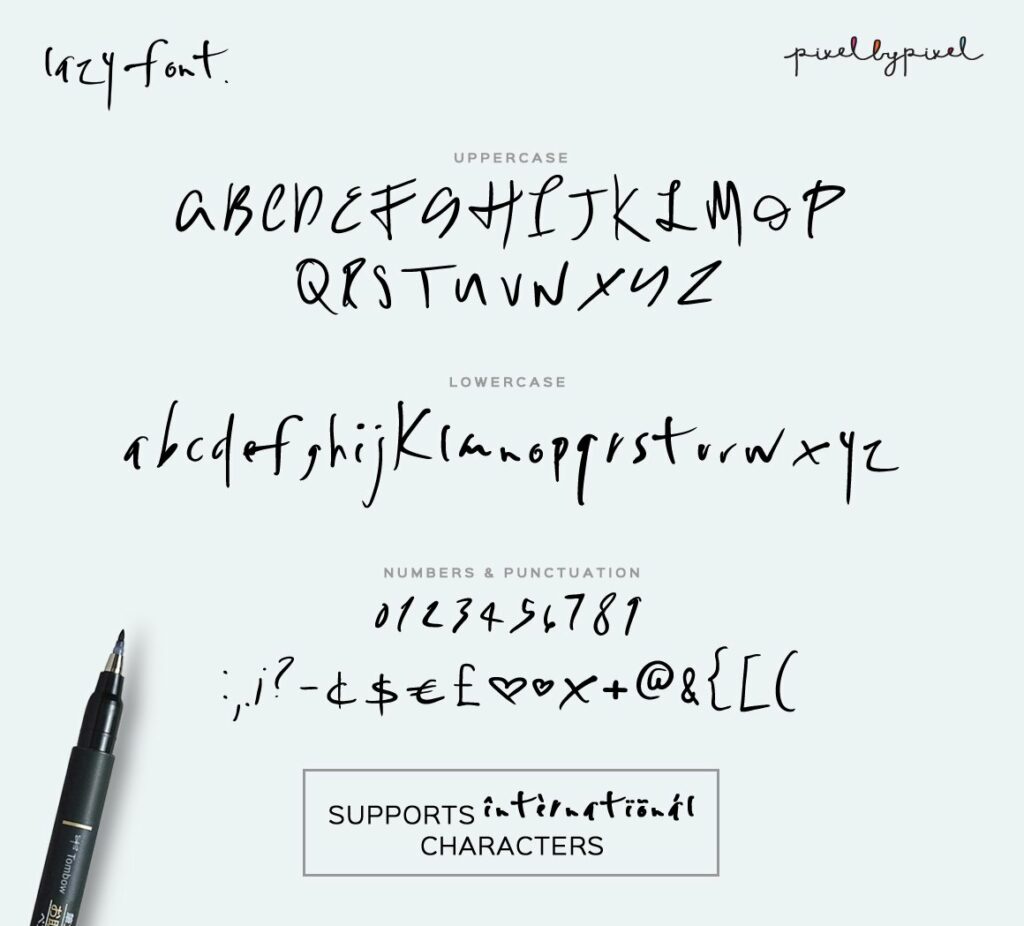 lazy font.
pixelbypixel
UPPERCASE
ABCDEFGHIJKLMOP
QRSTUVWXYZ
LOWERCASE
abcdefghijklmnopqrstuvwxyz
NUMBERS & PUNCTUATION
0123456789
:,.i?-¢$€£♡♡x+@&{[(
SUPPORTS întèrnatïönál
CHARACTERS
Tombow